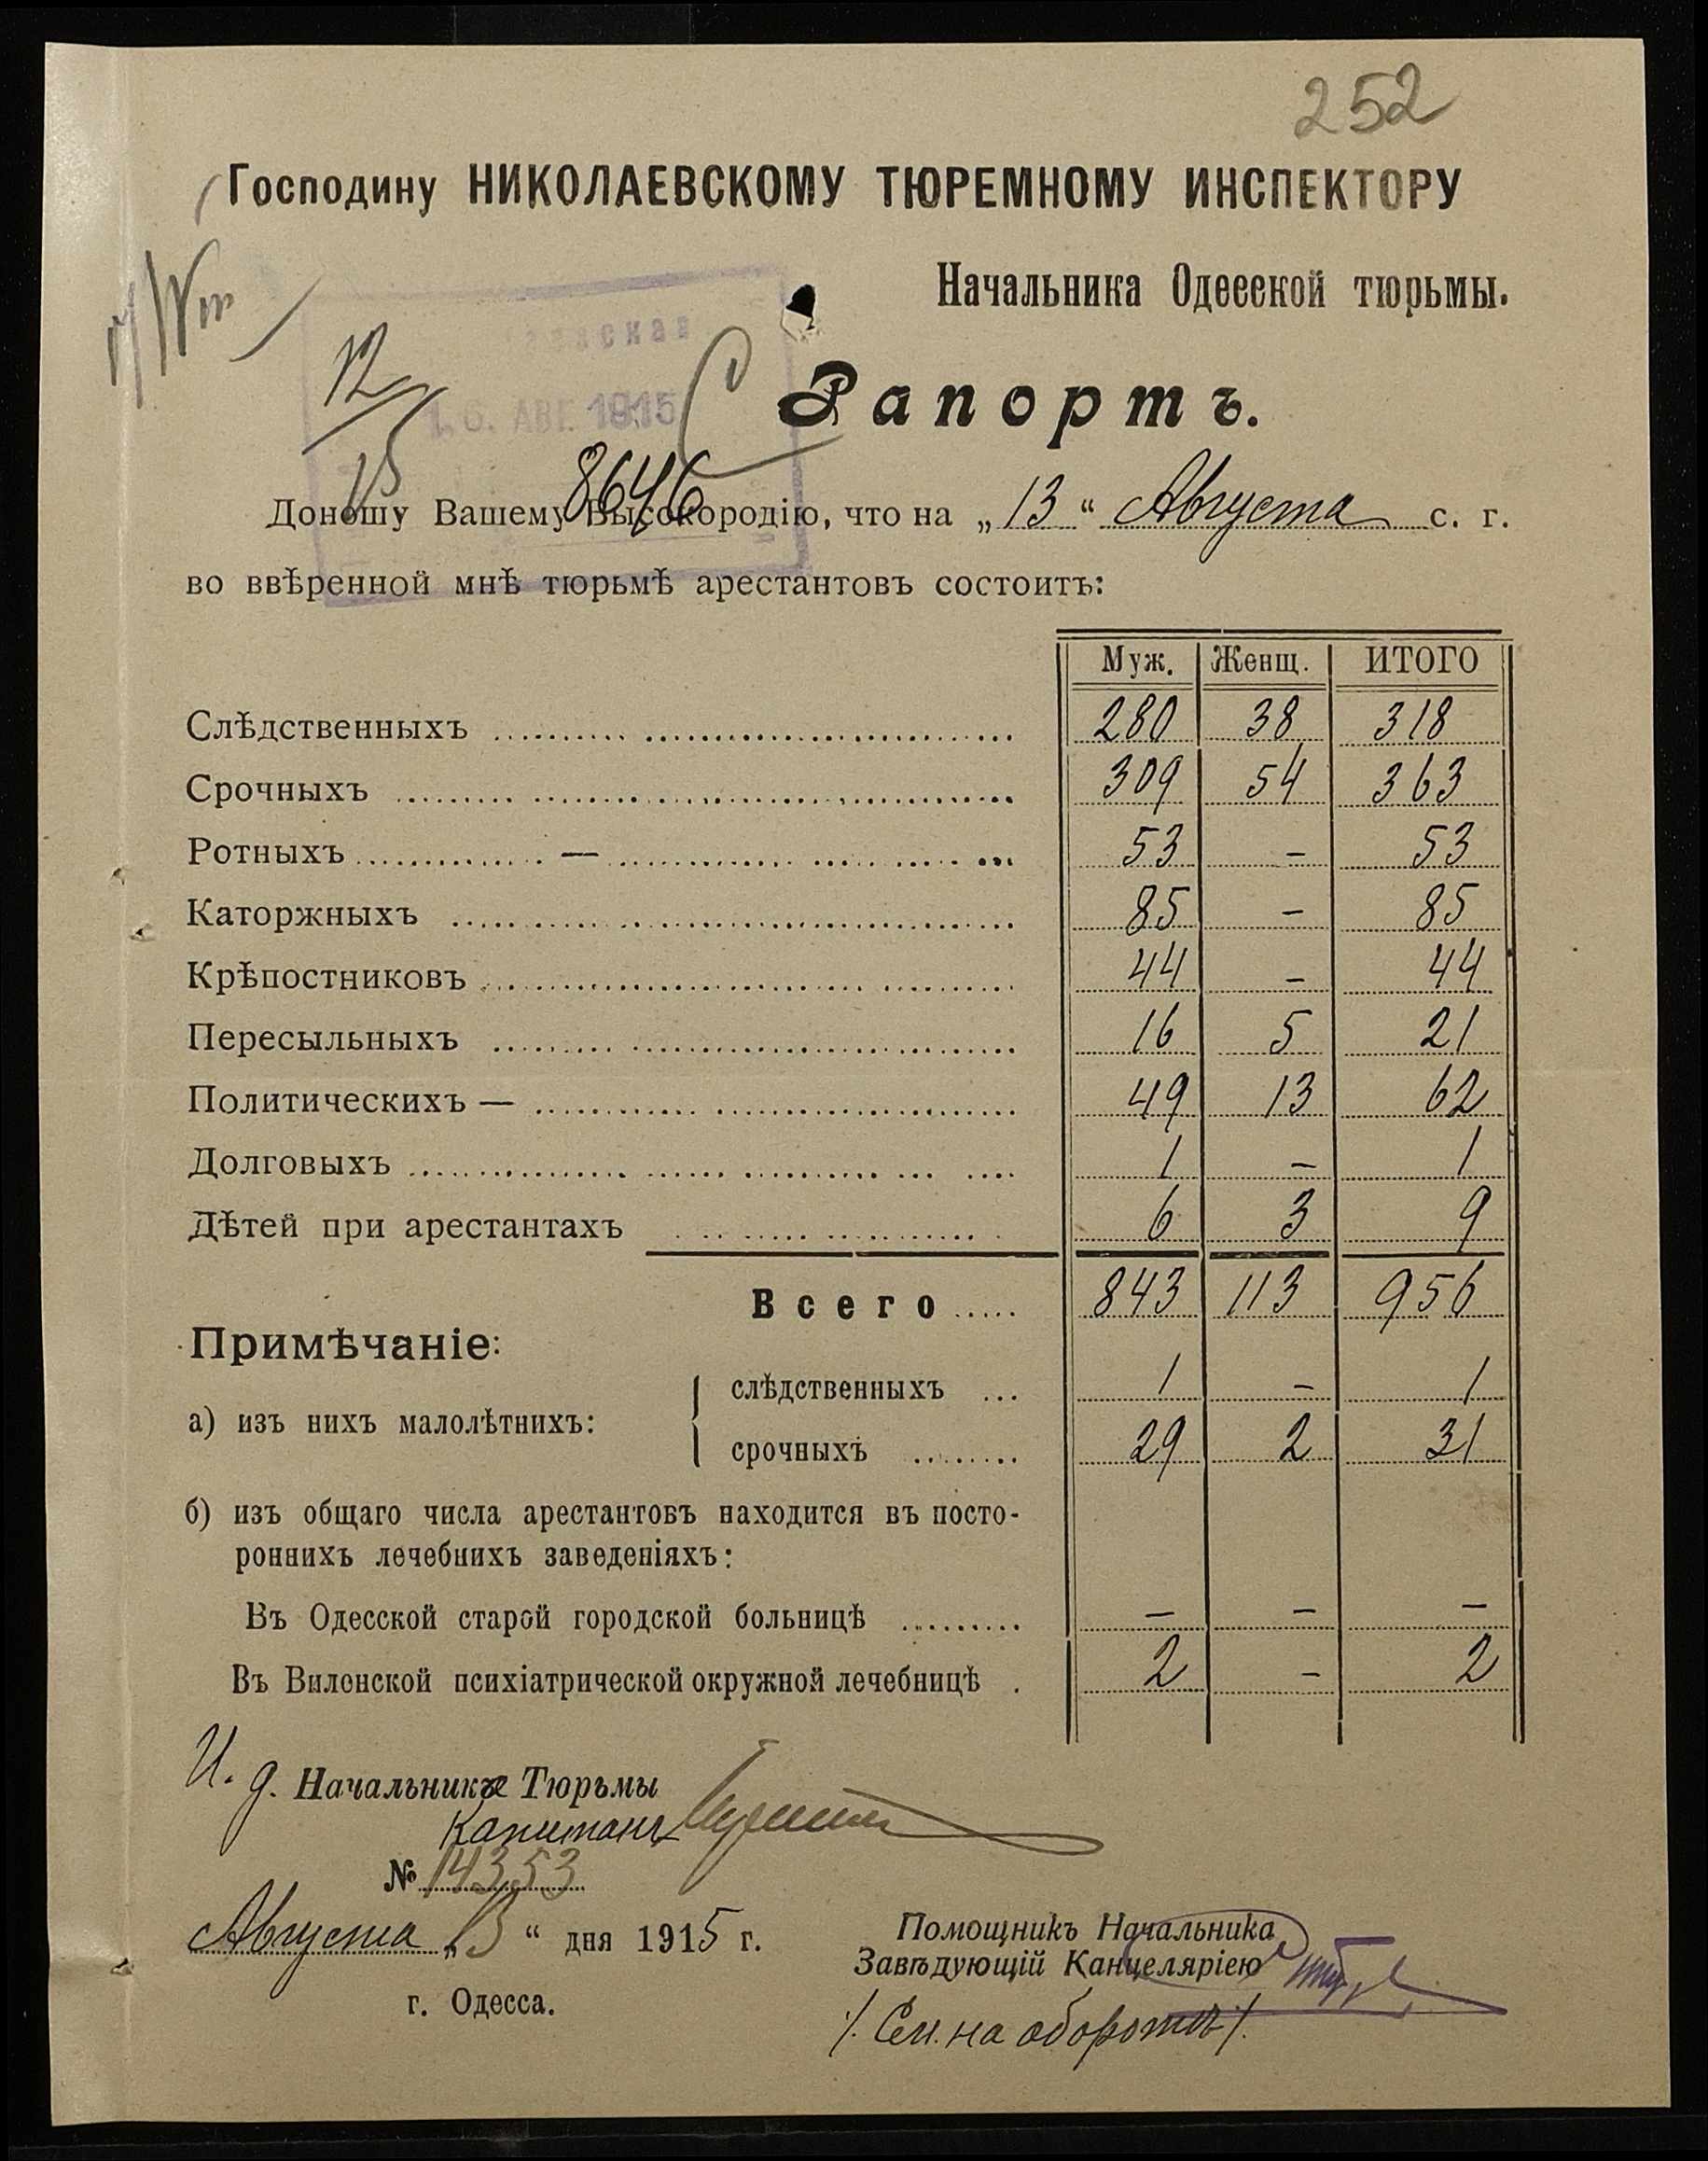 252
Господину НИКОЛАЕВСКОМУ ТЮРЕМНОМУ ИНСПЕКТОРУ
Начальника Одесской тюрьмы.
АВГ. 1915
Рапортъ.
12
15
8646
Доношу Вашему Высокородію, что на „13“ Августа с. г.
во ввѣренной мнѣ тюрьмѣ арестантовъ состоитъ:
Муж. Женщ. ИТОГО
Слѣдственныхъ 280 38 318
Срочныхъ 309 54 363
Ротныхъ — 53 - 53
Каторжныхъ 85 - 85
Крѣпостниковъ 44 - 44
Пересыльныхъ 16 5 21
Политическихъ — 49 13 62
Долговыхъ 1 - 1
Дѣтей при арестантахъ 6 3 9
Всего 843 113 956
Примѣчаніе:
слѣдственныхъ 1 - 1
а) изъ нихъ малолѣтнихъ:
срочныхъ 29 2 31
б) изъ общаго числа арестантовъ находится въ посто-
роннихъ лечебнихъ заведеніяхъ:
Въ Одесской старой городской больницѣ - - -
Въ Виленской психіатрической окружной лечебницѣ 2 - 2
И. д. Начальника Тюрьмы
Капитанъ
№ 14353
Августа „13“ дня 1915 г.
г. Одесса.
Помощникъ Начальника
Завѣдующій Канцеляріею
/. См. на оборотѣ /.